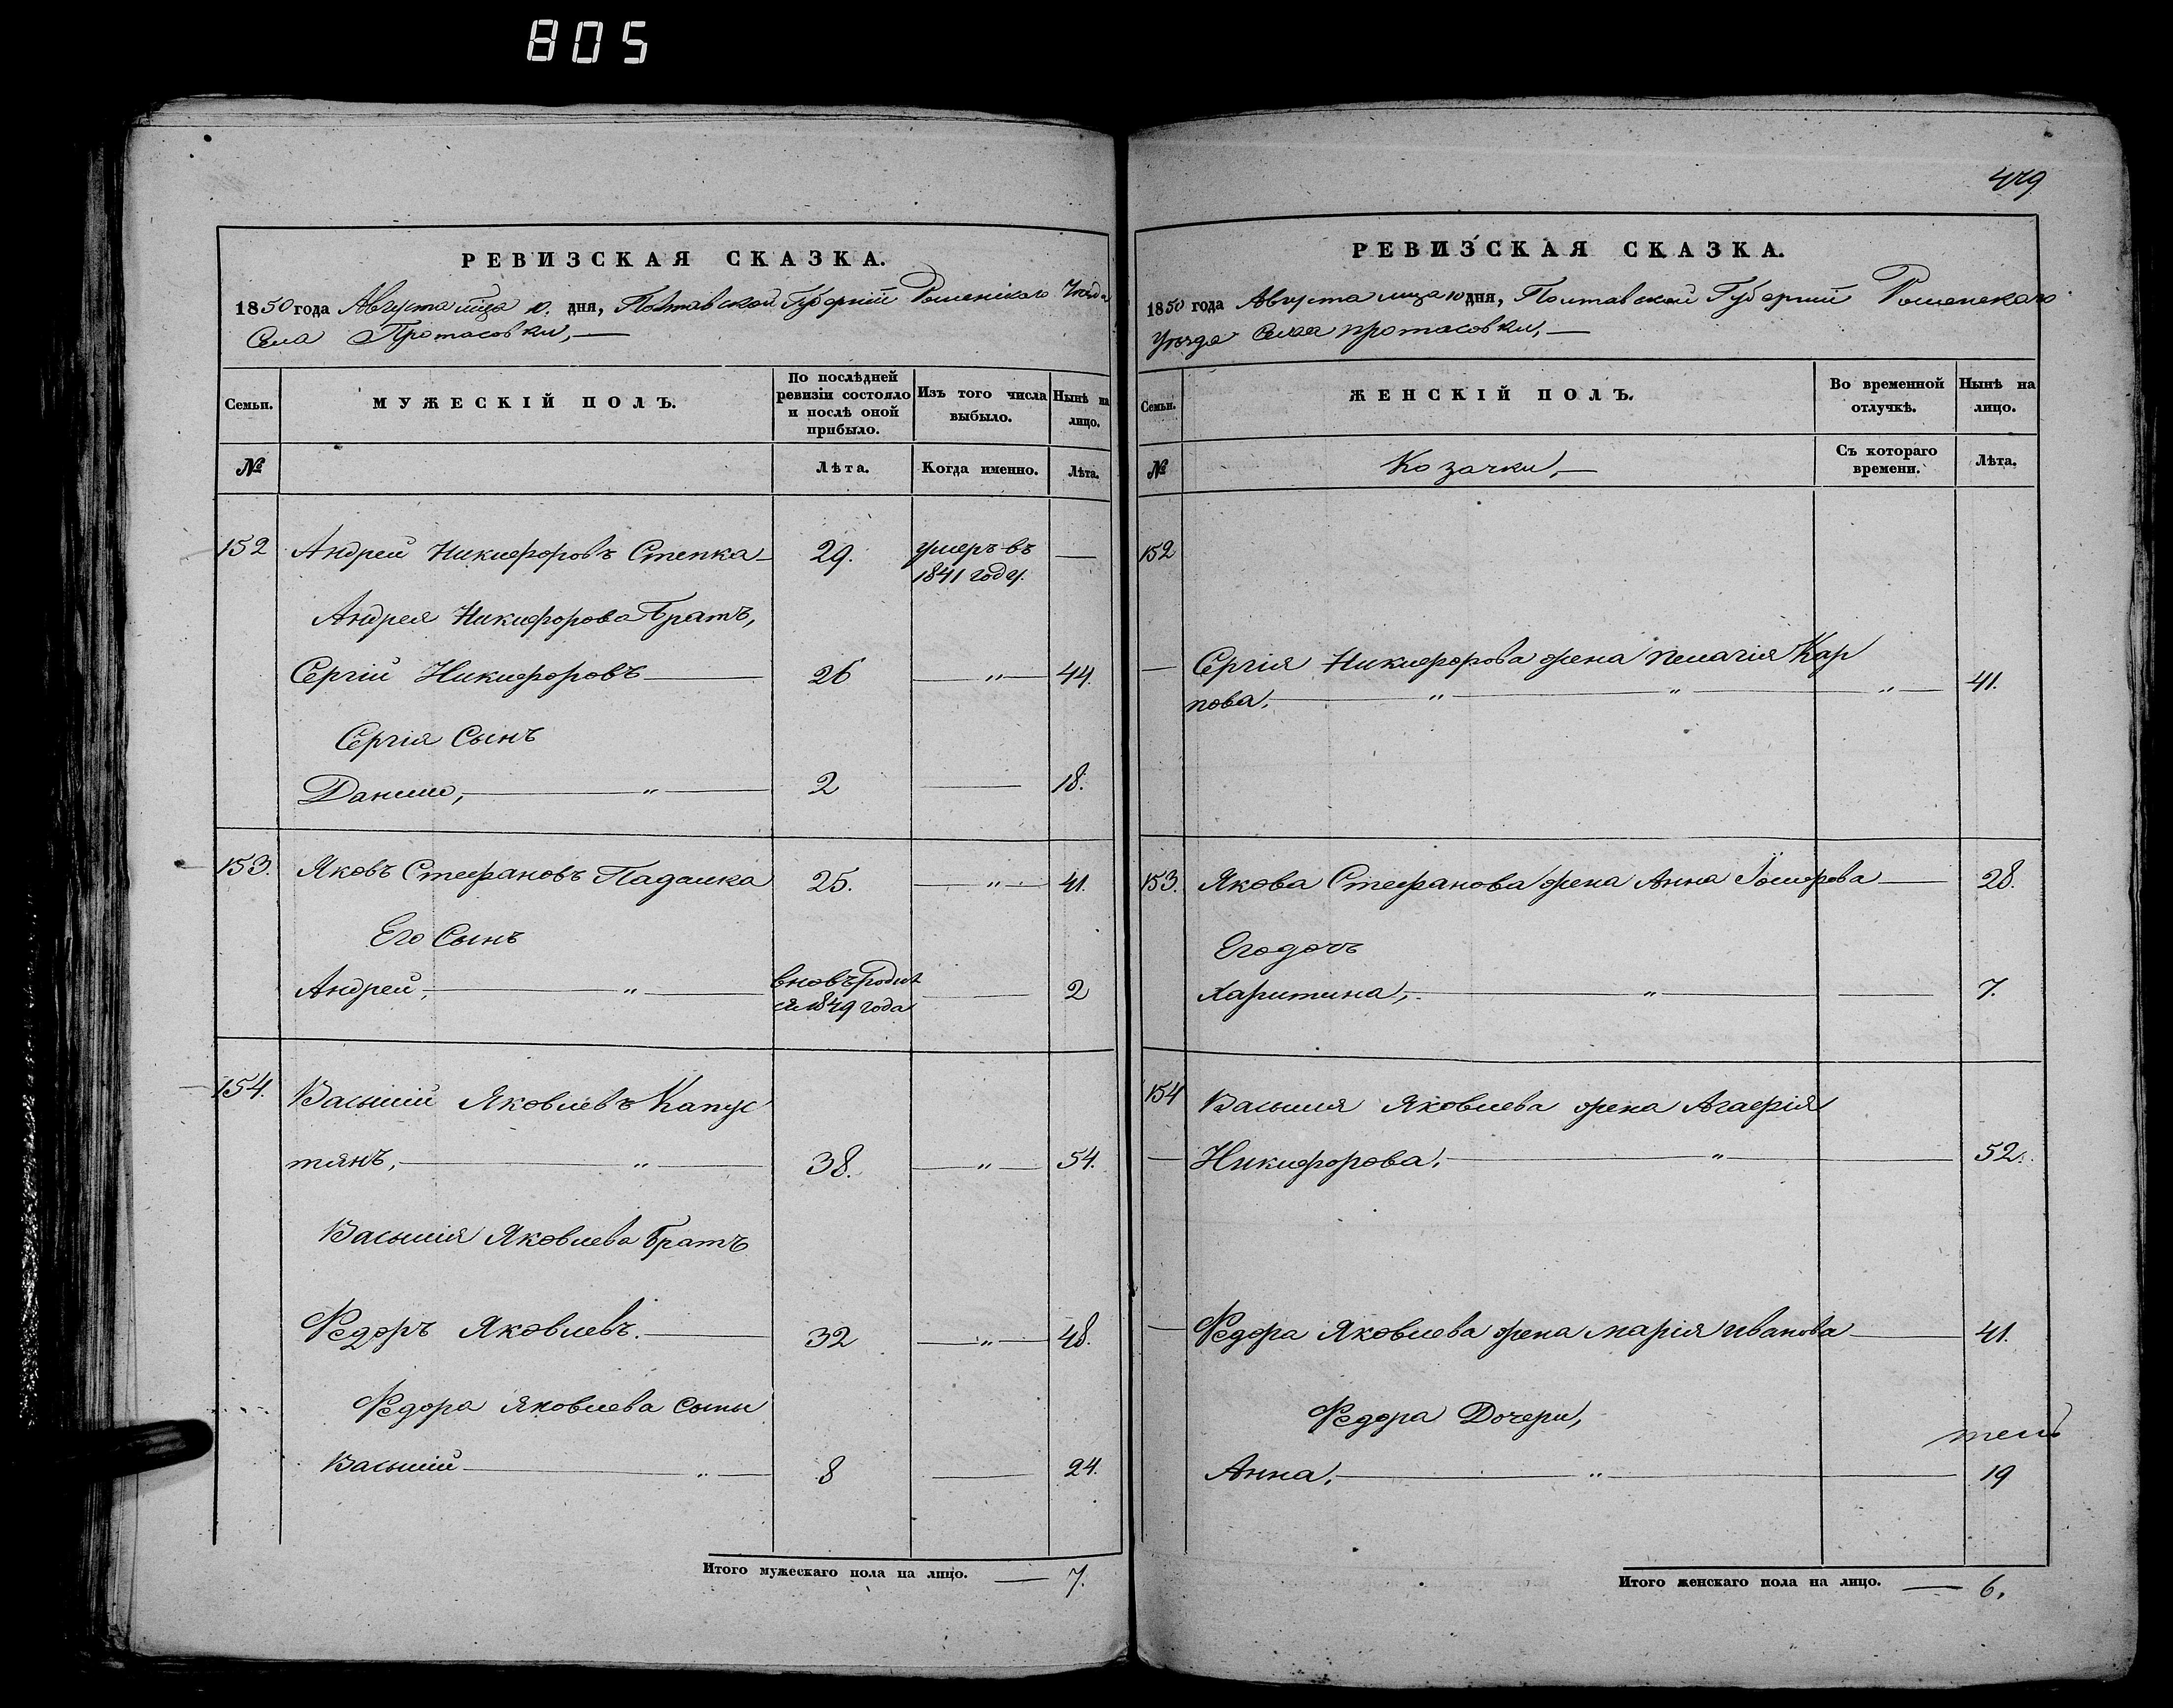 805
РЕВИЗСКАЯ СКАЗКА.
1850 года Августа мца 10. дня, Полтавской Губерніи Роменскаго Уезда
Села Протасовки,
Семьи.
МУЖЕСКІЙ ПОЛЪ.
По послѣдней
ревизіи состояло
и послѣ оной
прибыло.
Изъ того числа
выбыло.
Нынѣ на
лицо.
№
Лѣта.
Когда именно.
Лѣта.
152 Андрей Никифоровъ Степка 29. умеръ въ —
1841 году.
Андрея Никифорова Братъ,
Сергій Никифоровъ — 26 — " — 44.
Сергія Сынъ
Данило, — " — 2 — 18.
153. Яковъ Стефановъ Падалка 25. — " — 41.
Его Сынъ
Андрей, — " — вновь родил — 2
ся 1849 года
154. Василий Яковлевъ Капус
тянъ, — " — 38. — " — 54.
Василия Яковлева Братъ
Федоръ Яковлевъ. — 32 — " — 48.
Федора Яковлева сыны
Василий — " — 8 — 24.
Итого мужескаго пола на лицо. — 7.
479
РЕВИЗСКАЯ СКАЗКА.
1850 года Августа мца 10 дня, Полтавской Губерніи Роменскаго
Уезда Села протасовки, —
Семьи.
ЖЕНСКІЙ ПОЛЪ.
Во временной
отлучкѣ.
Нынѣ на
лицо.
№
Козачки, —
Съ котораго
времени.
Лѣта.
152
— Сергія Никифорова жена Пелагія Кар
пова, — " — " — " — 41.
153. Якова Стефанова жена Анна — 28.
Его дочь
Харитина, — " — — 7.
154 Василия Яковлева жена Агафія
— Никифорова, — " — 52.
— Федора Яковлева жена марія иванова — 41.
Федора Дочери,
Анна, — " — 19
Итого женскаго пола на лицо. — 6.